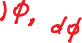 )φ, dφ